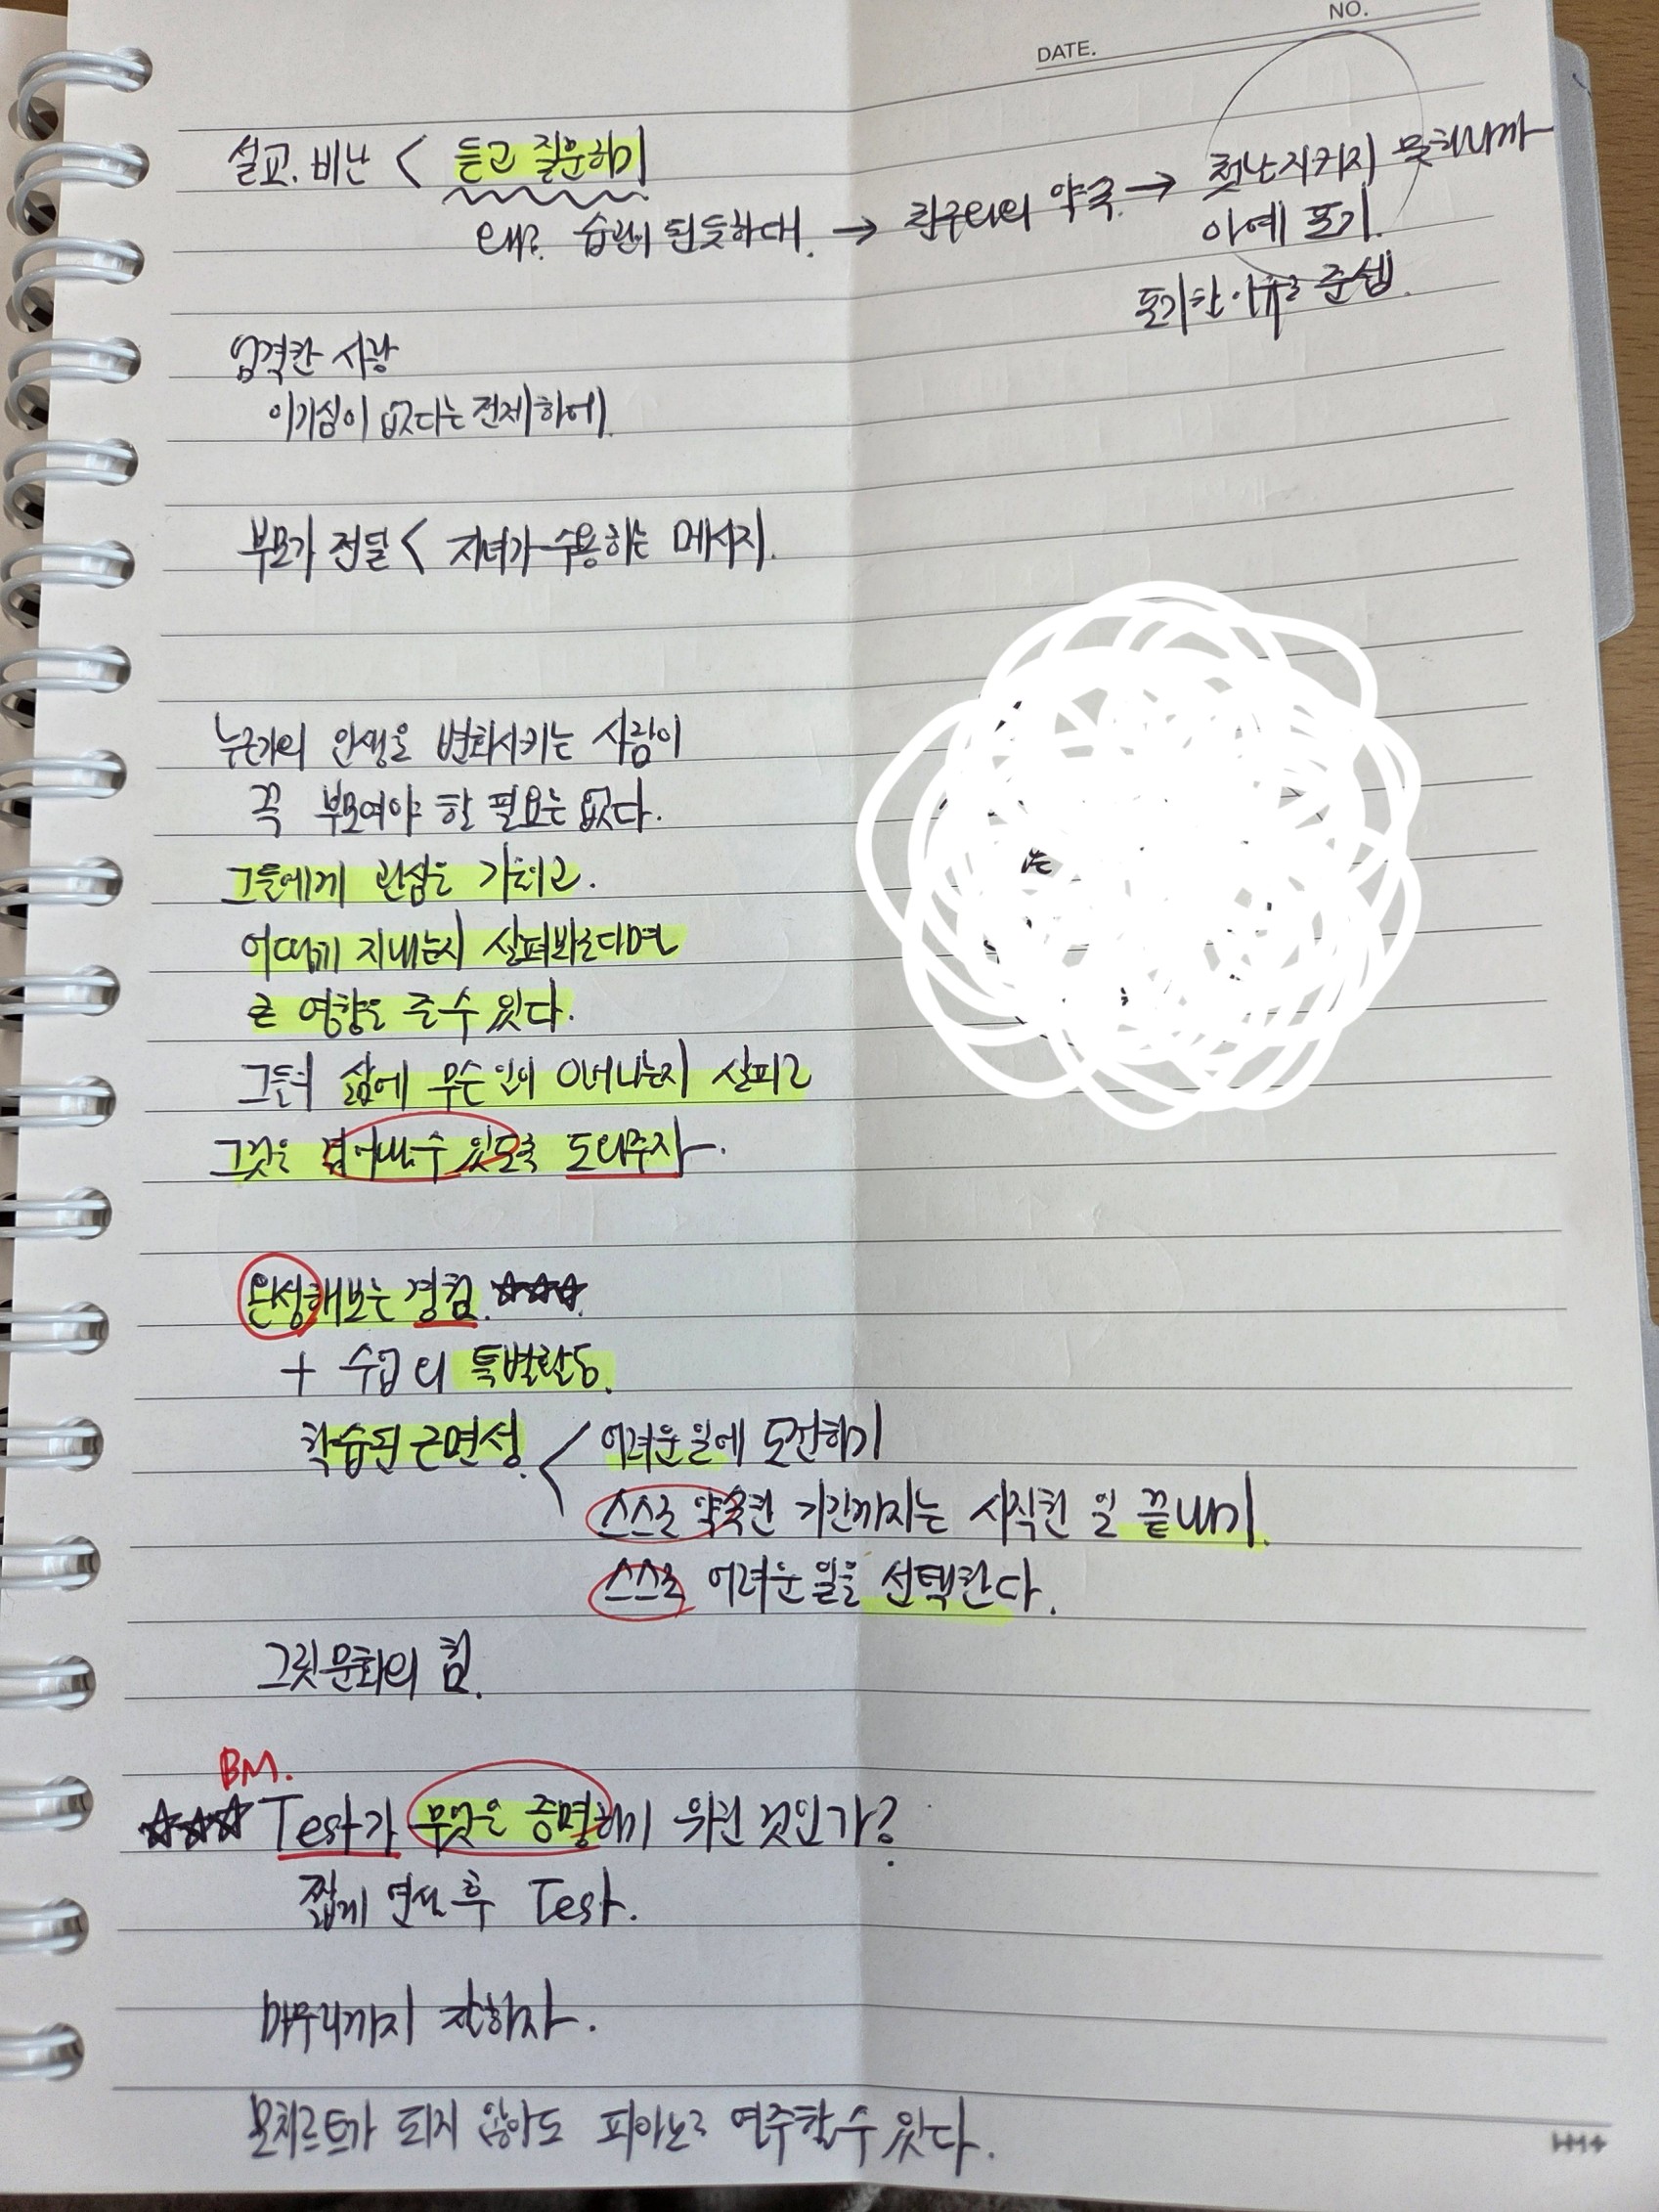 NO.
DATE.
설교. 비난 < 듣고 질문하기
왜? 습관이 된듯하대. → 친구와의 약국. → 첫난지키지 못하니까
아예 포기.
포기한 이유를 준셈.
엄격한 사랑
이기심이 없다는 전제하에
부모가 전달 < 자녀가 수용하는 메시지.
누군가의 인생을 변화시키는 사람이
꼭 부모여야 할 필요는 없다.
그들에게 관심을 가지고.
어떻게 지내는지 살펴봐준다면
큰 영향을 줄 수 있다.
그들의 삶에 무슨 일이 일어나는지 살피고
그것을 넘어낼 수 있도록 도와주자.
완성해보는 경험. ☆☆☆
+ 수업 외 특별활동.
학습된 근면성. < 어려운 일에 도전하기
스스로 약속한 기간까지는 시작한 일 끝내기.
스스로 어려운 일을 선택한다.
그릿 문화의 힘.
BM.
☆☆☆ Test가 무엇을 증명하기 위한 것인가?
짧게 연습 후 Test.
마무리까지 잘하자.
모차르트가 되지 않아도 피아노를 연주할 수 있다.